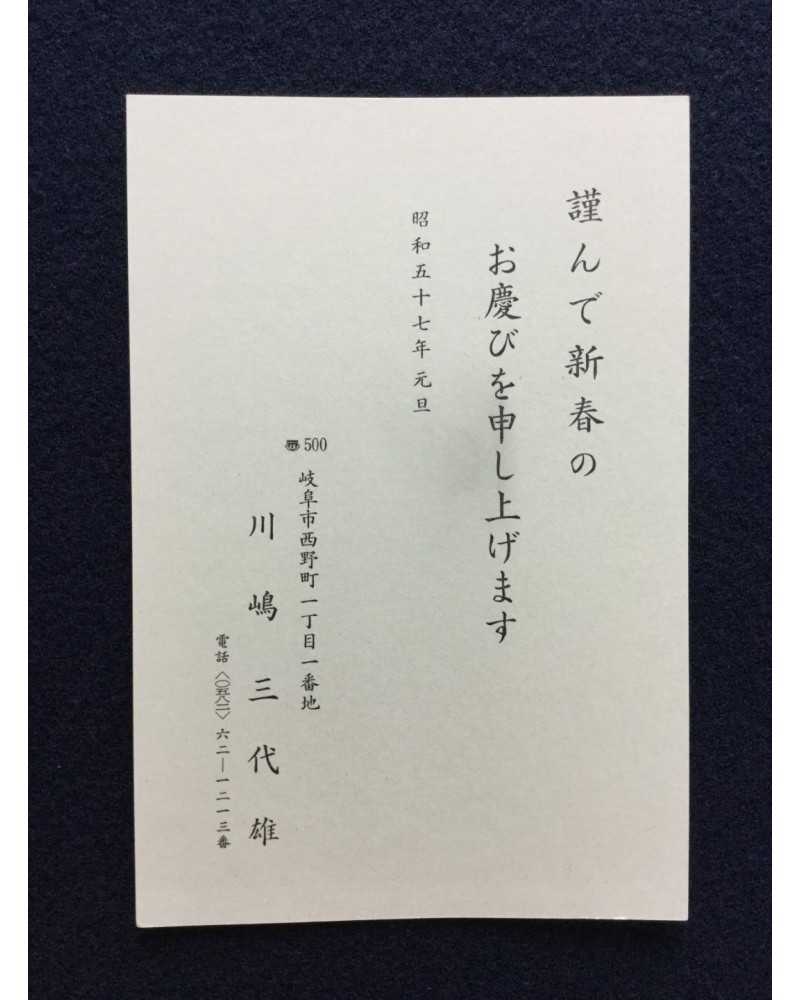 謹んで新春の
お慶びを申し上げます
昭和五十七年元旦
〠500
岐阜市西野町一丁目一番地
川嶋三代雄
電話〈〇五八二〉六二―一二一三番